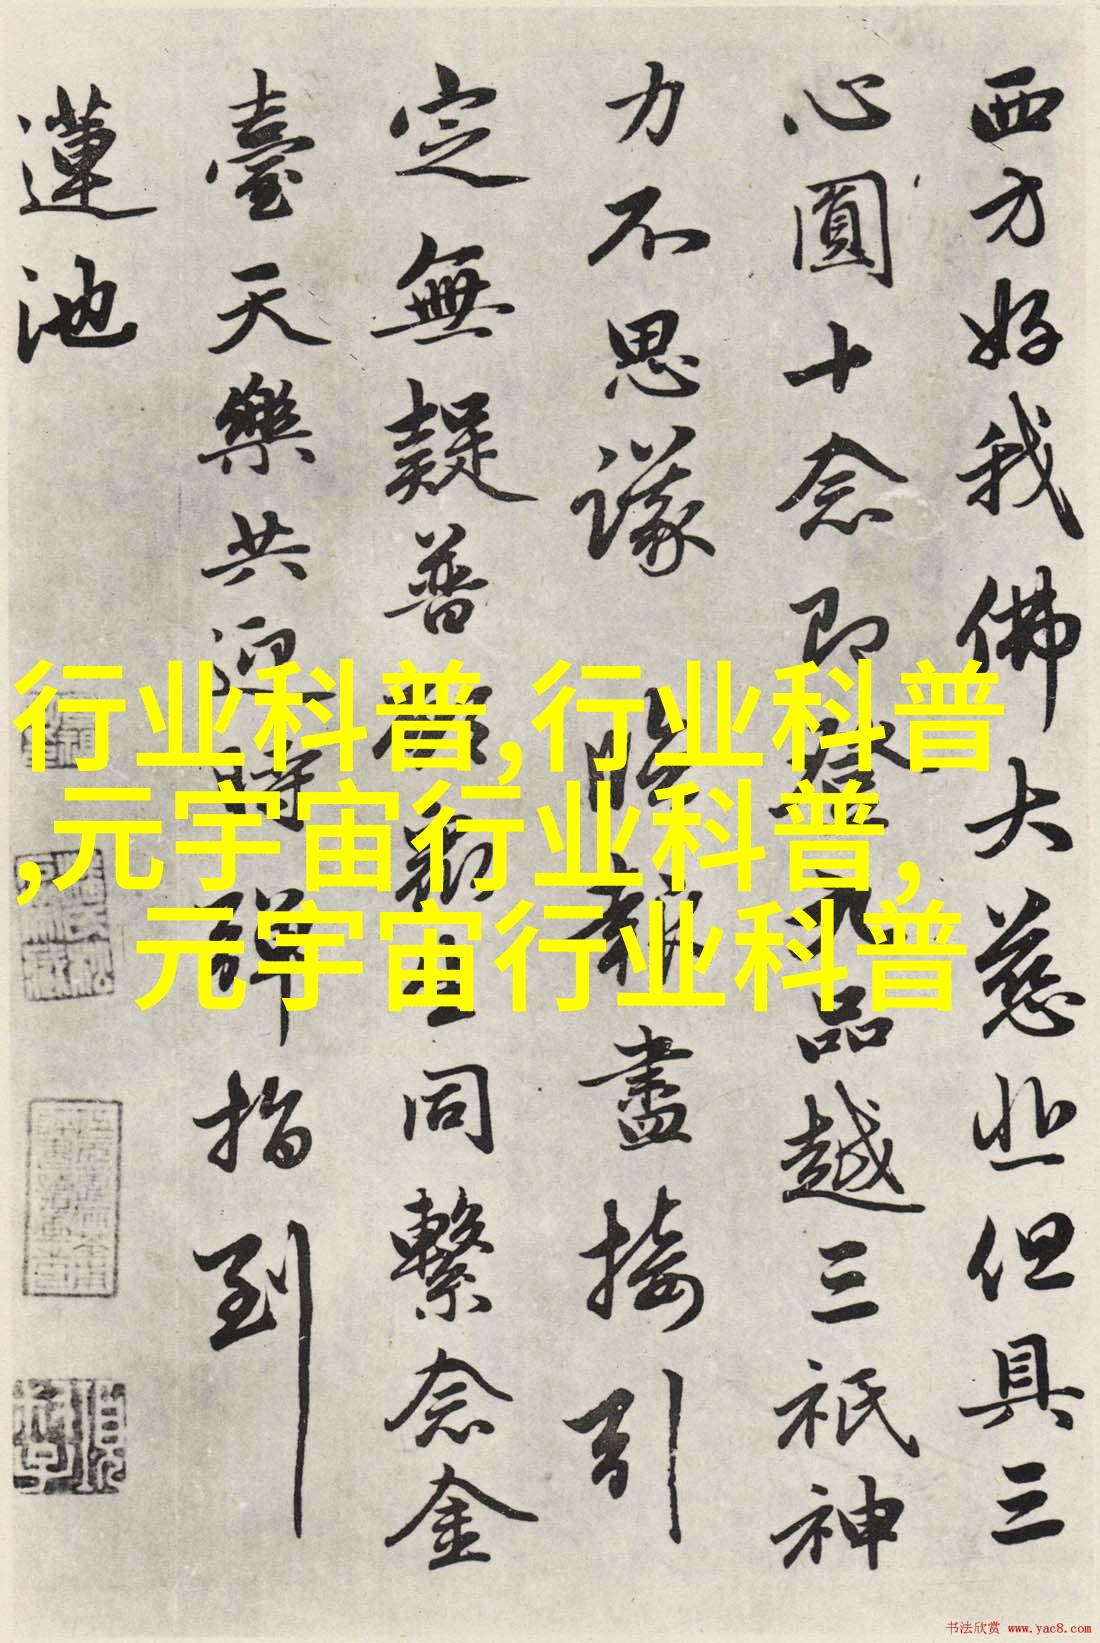 西方好我佛大慈悲但具三
心圓十念即登九品越三祇神
力不思議 臨報盡接引
定無疑普勸同繫念金
臺天樂共迎時彈指到
蓮池
行业科普,行业科普
,元宇宙行业科普,
元宇宙行业科普
书法欣赏 www.yac8.com